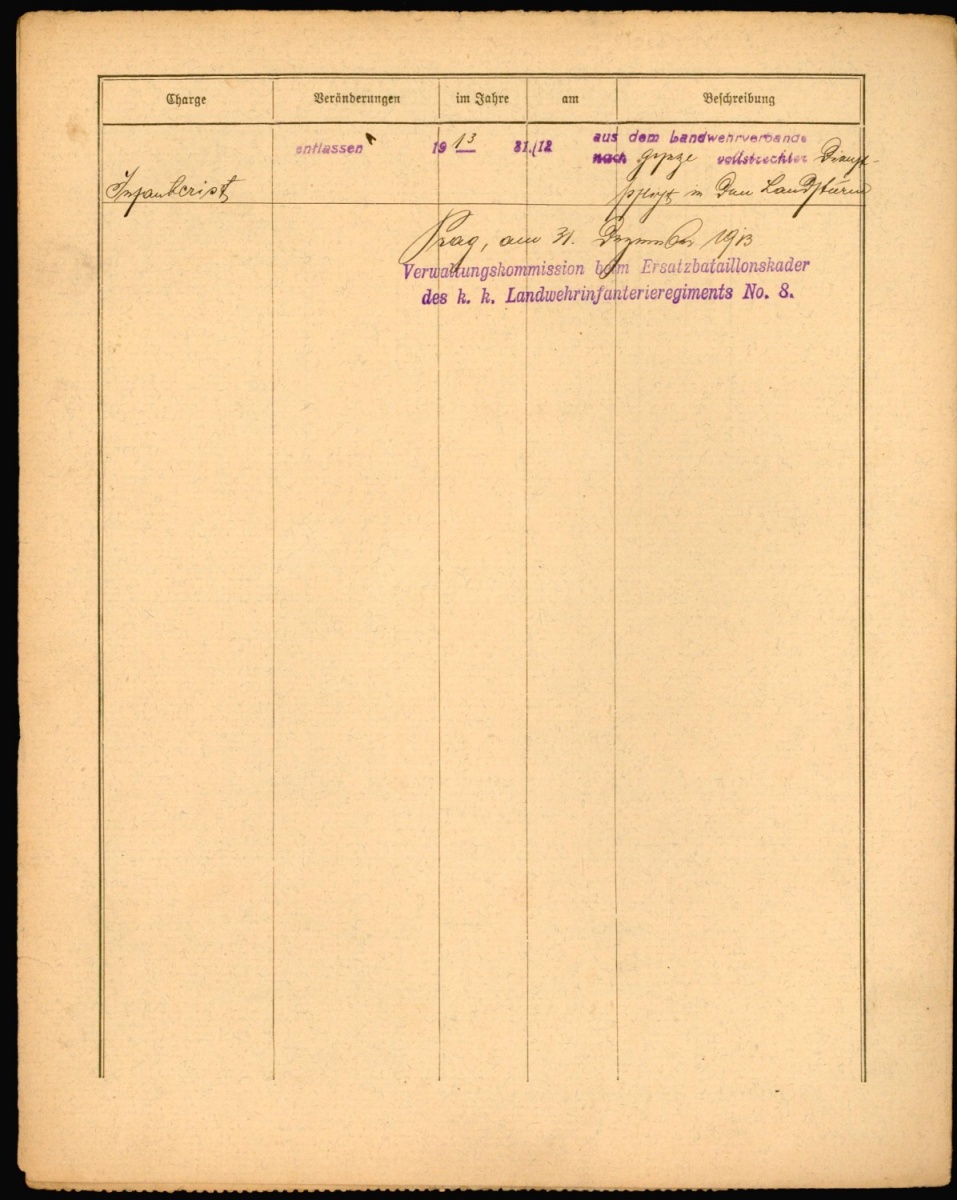 Charge Veränderungen im Jahre am Beschreibung
entlassen 1913 31./12 aus dem Landwehrverbande
nach vollstreckter Dienst-
Infanterist pflicht in den Landsturm
Prag, am 31. Dezember 1913
Verwaltungskommission beim Ersatzbataillonskader
des k. k. Landwehrinfanterieregiments No. 8.